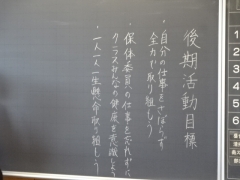 後期活動目標
・自分の仕事をさぼらず
全力で取り組もう
・保体委員の仕事を忘れずに
クラスみんなの健康を意識しよう
・一人一人一生懸命取り組もう
1
2
3
4
5
6